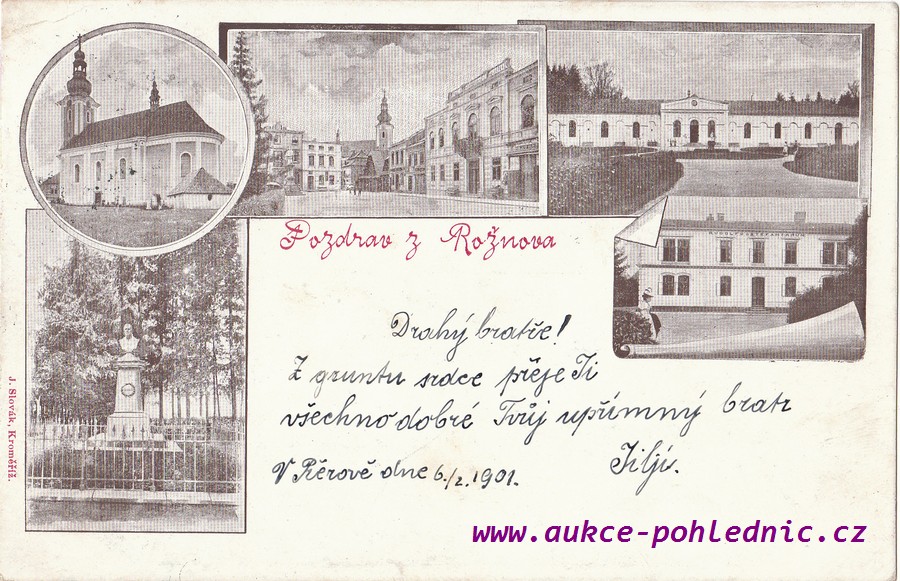 Pozdrav z Rožnova
Drahý bratře!
Z gruntu srdce přeje Ti
všechno dobré Tvůj upřímný bratr
Jiljí.
V Přerově dne 6./2. 1901.
J. Slovák, Kroměříž.
www.aukce-pohlednic.cz